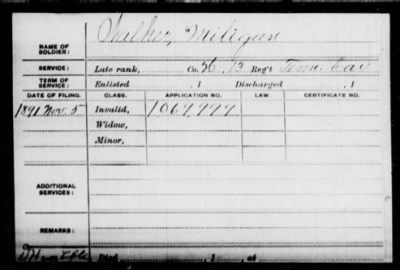 Walker, Miligan
NAME OF SOLDIER:
SERVICE: Late rank, Co. 13 Reg't Tenn Cav
TERM OF SERVICE: Enlisted , 1 Discharged , 1
DATE OF FILING. CLASS. APPLICATION NO. LAW. CERTIFICATE NO.
1891 Nov. 5 Invalid, 1067,999
Widow,
Minor,
ADDITIONAL SERVICES:
REMARKS:
Died , 1 , at